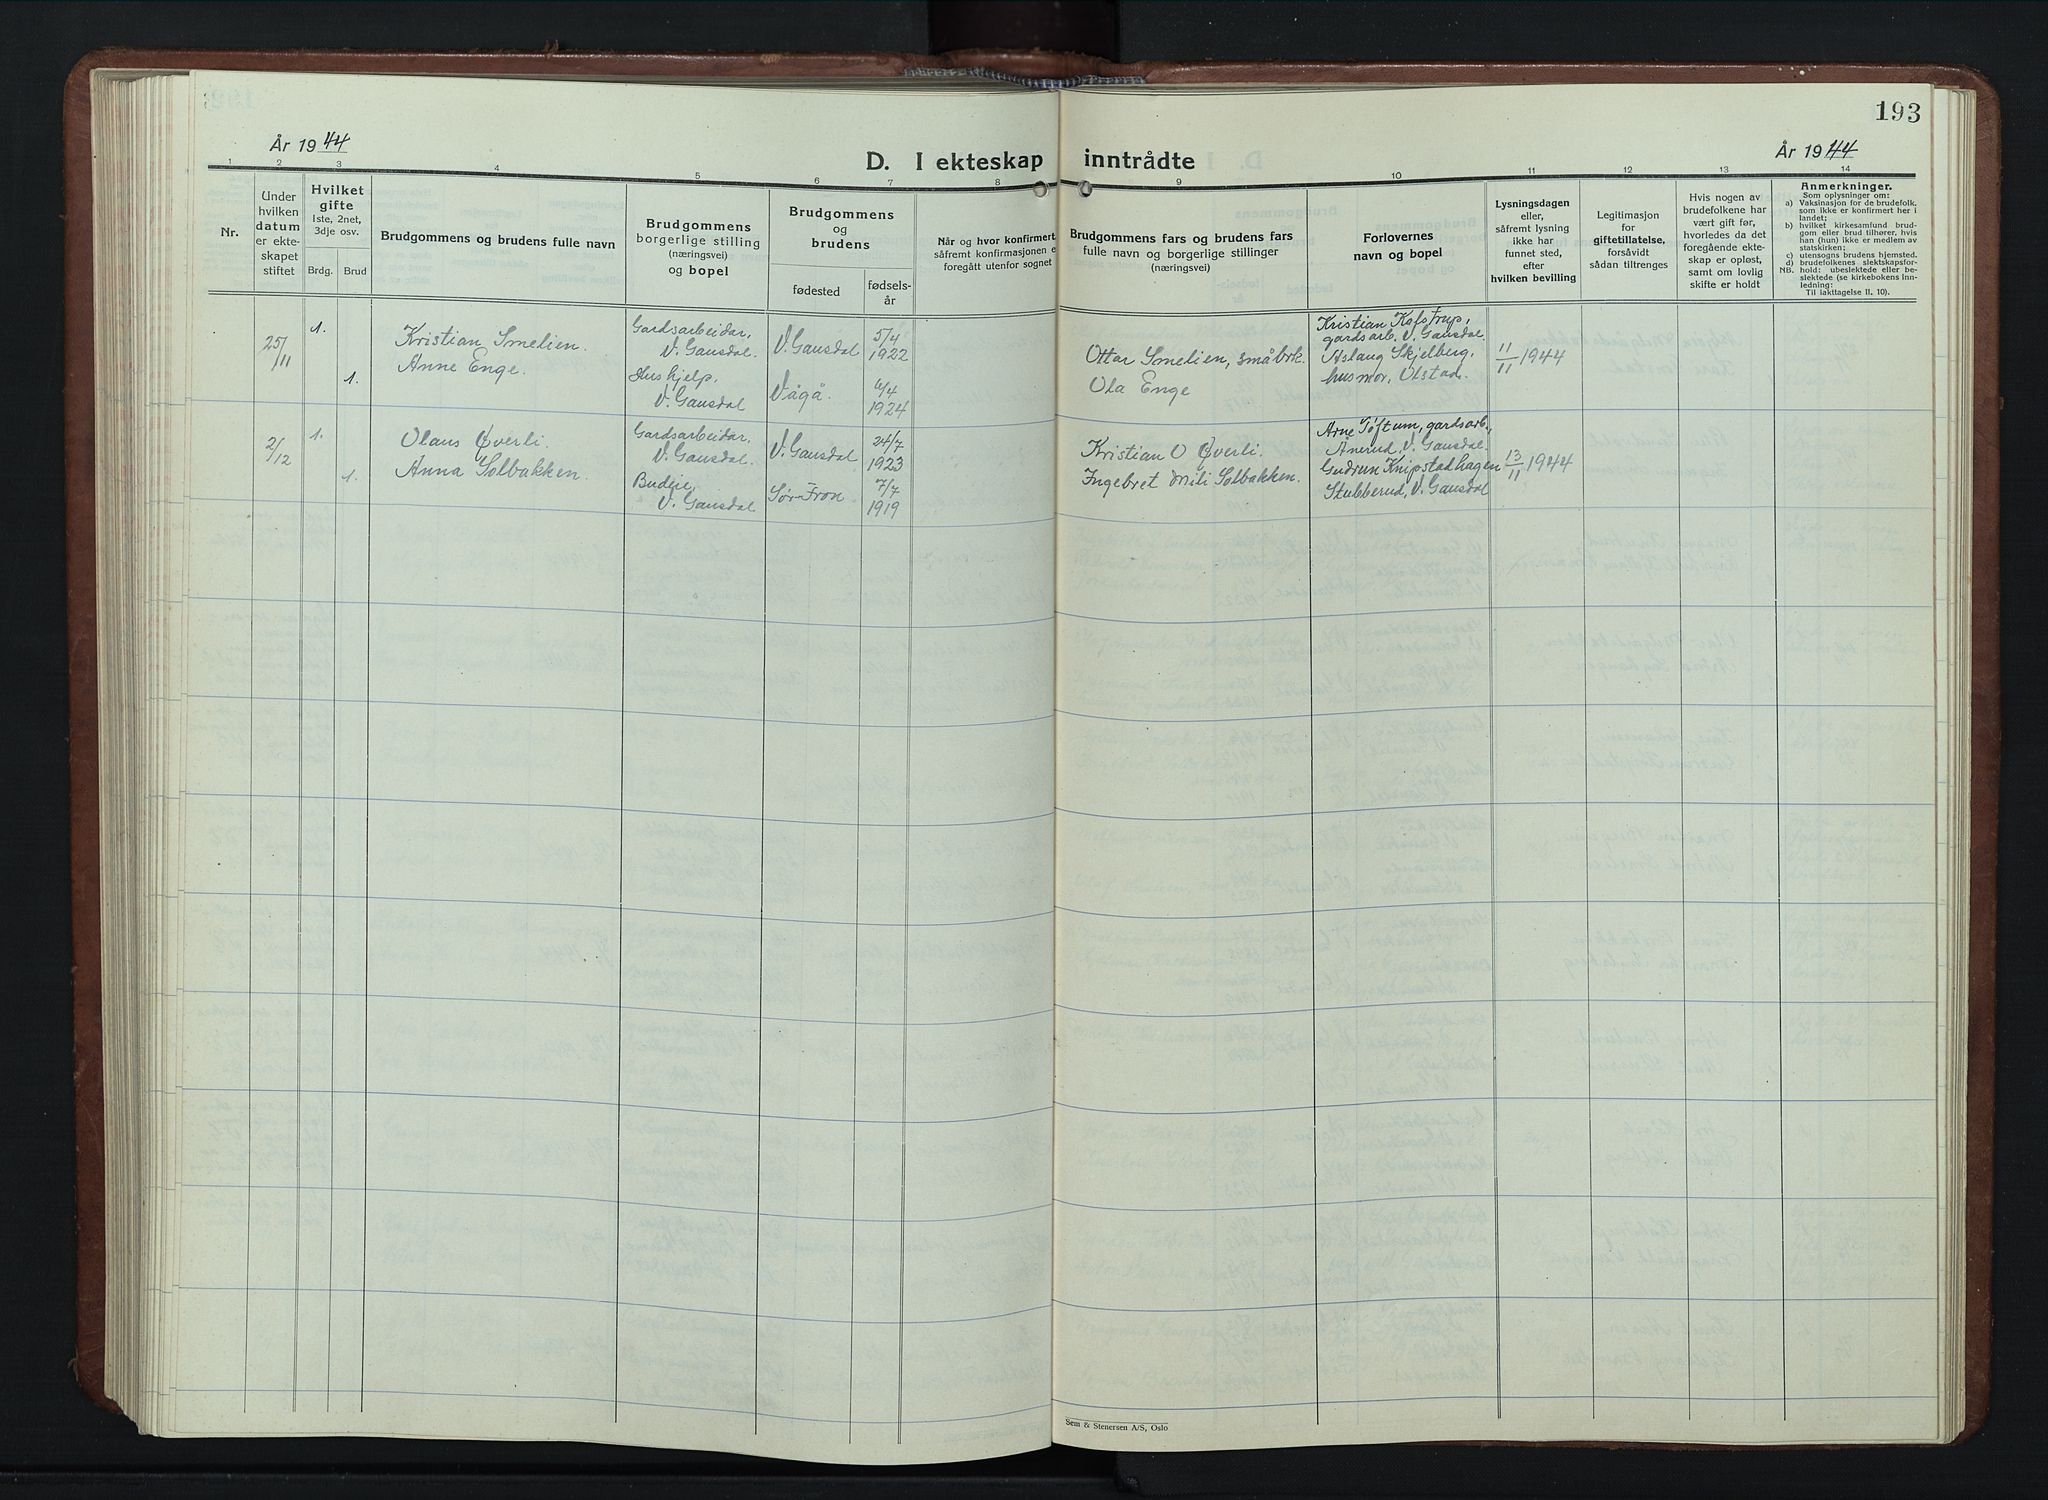 193
År 1944
D. I ekteskap inntrådte
År 1944
1 2 3 4 5 6 7 8 9 10 11 12 13 14
Nr.
Under hvilken datum er ekteskapet stiftet
Hvilket gifte
1ste, 2net, 3dje osv.
Brdg. Brud
Brudgommens og brudens fulle navn
Brudgommens borgerlige stilling (næringsvei) og bopel
Brudgommens og brudens
fødested
fødselsår
Når og hvor konfirmert,
såfremt konfirmasjonen e
foregått utenfor sognet
Brudgommens fars og brudens fars
fulle navn og borgerlige stillinger
(næringsvei)
Forlovernes
navn og bopel
Lysningsdagen
eller,
såfremt lysning
ikke har
funnet sted,
efter
hvilken bevilling
Legitimasjon
for
giftetillatelse,
forsåvidt
sådan tiltrenges
Hvis nogen av
brudefolkene har
vært gift før,
hvorledes da det
foregående ekte-
skap er opløst,
samt om lovlig
skifte er holdt
Anmerkninger.
Som oplysninger om:
a) Vaksinasjon for de brudefolk,
som ikke er konfirmert her i
landet;
b) hvilket kirkesamfund brud-
gom eller brud tilhører, hvis
han (hun) ikke er medlem av
statskirken;
c) utensogns brudens hjemsted.
d) brudefolkenes slektskapsfor-
NB. hold: ubeslektede eller be-
slektede (se kirkebokens inn-
ledning:
Til iakttagelse II, 10).
25/11 1. Kristian Smelien. Gardsarbeidar, V. Gausdal. V. Gausdal 5/4 1922 Ottar Smelien, småbrk. Kristian Kalstrup, gardsarb. V. Gausdal. 11/11 1944
1. Anne Enge. Hushjelp, V. Gausdal Vågå. 6/4 1924 Ola Enge Aslaug Skjelberg, husmor, Olstad.
2/12 1. Olaus Øverli. Gardsarbeidar, V. Gausdal. V. Gausdal 24/7 1923 Kristian O Øverli. Arne Tøftum, gardsarb., Ånerud, V. Gausdal. 13/11 1944
1. Anna Solbakken. Budeie, V. Gausdal Sør-Fron 7/7 1919 Ingebret Mili Solbakken. Gudrun Knipstadhagen Stubberud, V. Gausdal
Sem & Stenersen A/S, Oslo